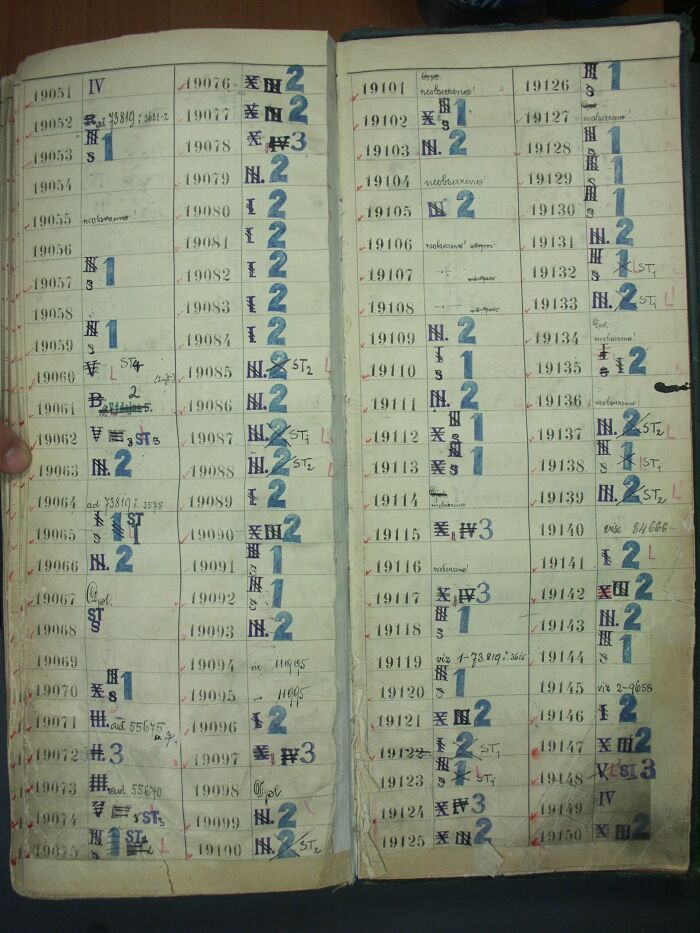 19051 IV
19052 ad 73819 i: 3621-2
19053 N s 1
19054
19055 neobsazeno
19056
19057 N s 1
19058
19059 N s 1
19060 V L ST4
19061 B 2
19062 V 3 ST3
19063 N. 2
19064 ad 73819 i: 3578
19065 1 ST 1
19066 N. 2
19067
19068 ST S
19069
19070 X N s 1
19071 H. ad 55675
19072 H. 3
19073 ad 55670
19074 V 3 ST3
19075 N s 1 ST2 L
19076 X III 2
19077 X III 2
19078 X IV 3
19079 N. 2
19080 I 2
19081 I 2
19082 I 2
19083 I 2
19084 I 2
19085 N. 2 ST2 L
19086 N. 2
19087 N. 2 ST1 L
19088 N. 2 ST2 L
19089 I 2
19090 X III 2
19091 N s 1
19092 N s 1
19093 N. 2
19094 viz 11995
19095 viz 11995
19096 I 2
19097 X IV 3
19098
19099 N. 2
19100 N. 2 ST2
19101 neobsazeno!
19102 X N s 1
19103 N. 2
19104 neobsazeno!
19105 N 2
19106 neobsazeno!
19107
19108
19109 N. 2
19110 I s 1
19111 N. 2
19112 X N s 1
19113 X N s 1
19114 neobsazeno
19115 X IV 3
19116 neobsazeno!
19117 X IV 3
19118 N s 1
19119 viz 1-73.819 i: 3615
19120 N s 1
19121 X III 2
19122 I 2 ST1
19123 N s 1 ST1
19124 X IV 3
19125 X III 2
19126 N s 1
19127 neobsazeno!
19128 N s 1
19129 N s 1
19130 N s 1
19131 N. 2
19132 N s 1 ST1
19133 N. 2 ST1 L
19134 neobsazeno!
19135 I s I 2
19136 neobsazeno!
19137 N. 2 ST2 L
19138 N s 1 ST1
19139 N. 2 ST2 L
19140 viz 84666
19141 I 2 L
19142 X III 2
19143 N. 2
19144 N s 1
19145 viz 2-9658
19146 I 2
19147 X III 2
19148 V L ST 3
19149 IV
19150 X III 2